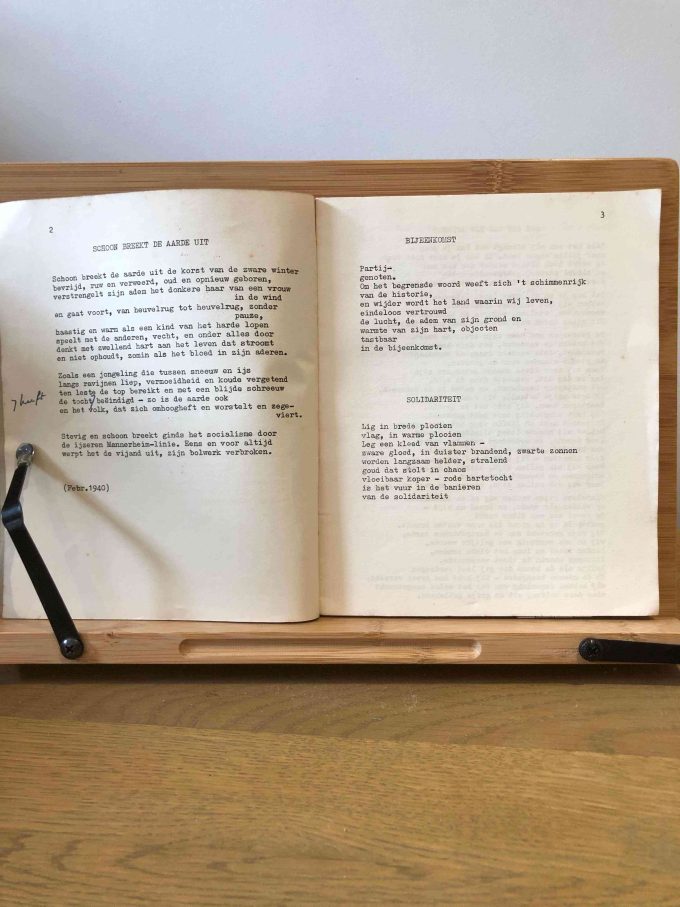 2
SCHOON BREEKT DE AARDE UIT
Schoon breekt de aarde uit de korst van de zware winter
bevrijd, ruw en verweerd, oud en opnieuw geboren,
verstrengelt zijn adem het donkere haar van een vrouw
in de wind
en gaat voort, van heuvelrug tot heuvelrug, zonder
pauze,
haastig en warm als een kind van het harde lopen
speelt met de anderen, vecht, en onder alles door
denkt met zwellend hart aan het leven dat stroomt
en niet ophoudt, zomin als het bloed in zijn aderen.
Zoals een jongeling die tussen sneeuw en ijs
langs ravijnen liep, vermoeidheid en koude vergetend
ten leste de top bereikt en met een blijde schreeuw
7 heeft
de tocht beëindigd - zo is de aarde ook
en het volk, dat zich omhoogheft en worstelt en zege-
viert.
Stevig en schoon breekt ginds het socialisme door
de ijzeren Mannerheim-linie. Eens en voor altijd
werpt het de vijand uit, zijn bolwerk verbroken.
(Febr.1940)
3
BIJEENKOMST
Partij-
genoten.
Om het begrensde woord weeft zich 't schimmenrijk
van de historie,
en wijder wordt het land waarin wij leven,
eindeloos vertrouwd
de lucht, de adem van zijn grond en
warmte van zijn hart, objecten
tastbaar
in de bijeenkomst.
SOLIDARITEIT
Lig in brede plooien
vlag, in warme plooien
Leg een kleed van vlammen -
zware gloed, in duister brandend, zwarte zonnen
worden langzaam helder, stralend
goud dat stolt in chaos
vloeibaar koper - rode hartstocht
is het vuur in de banieren
van de solidariteit